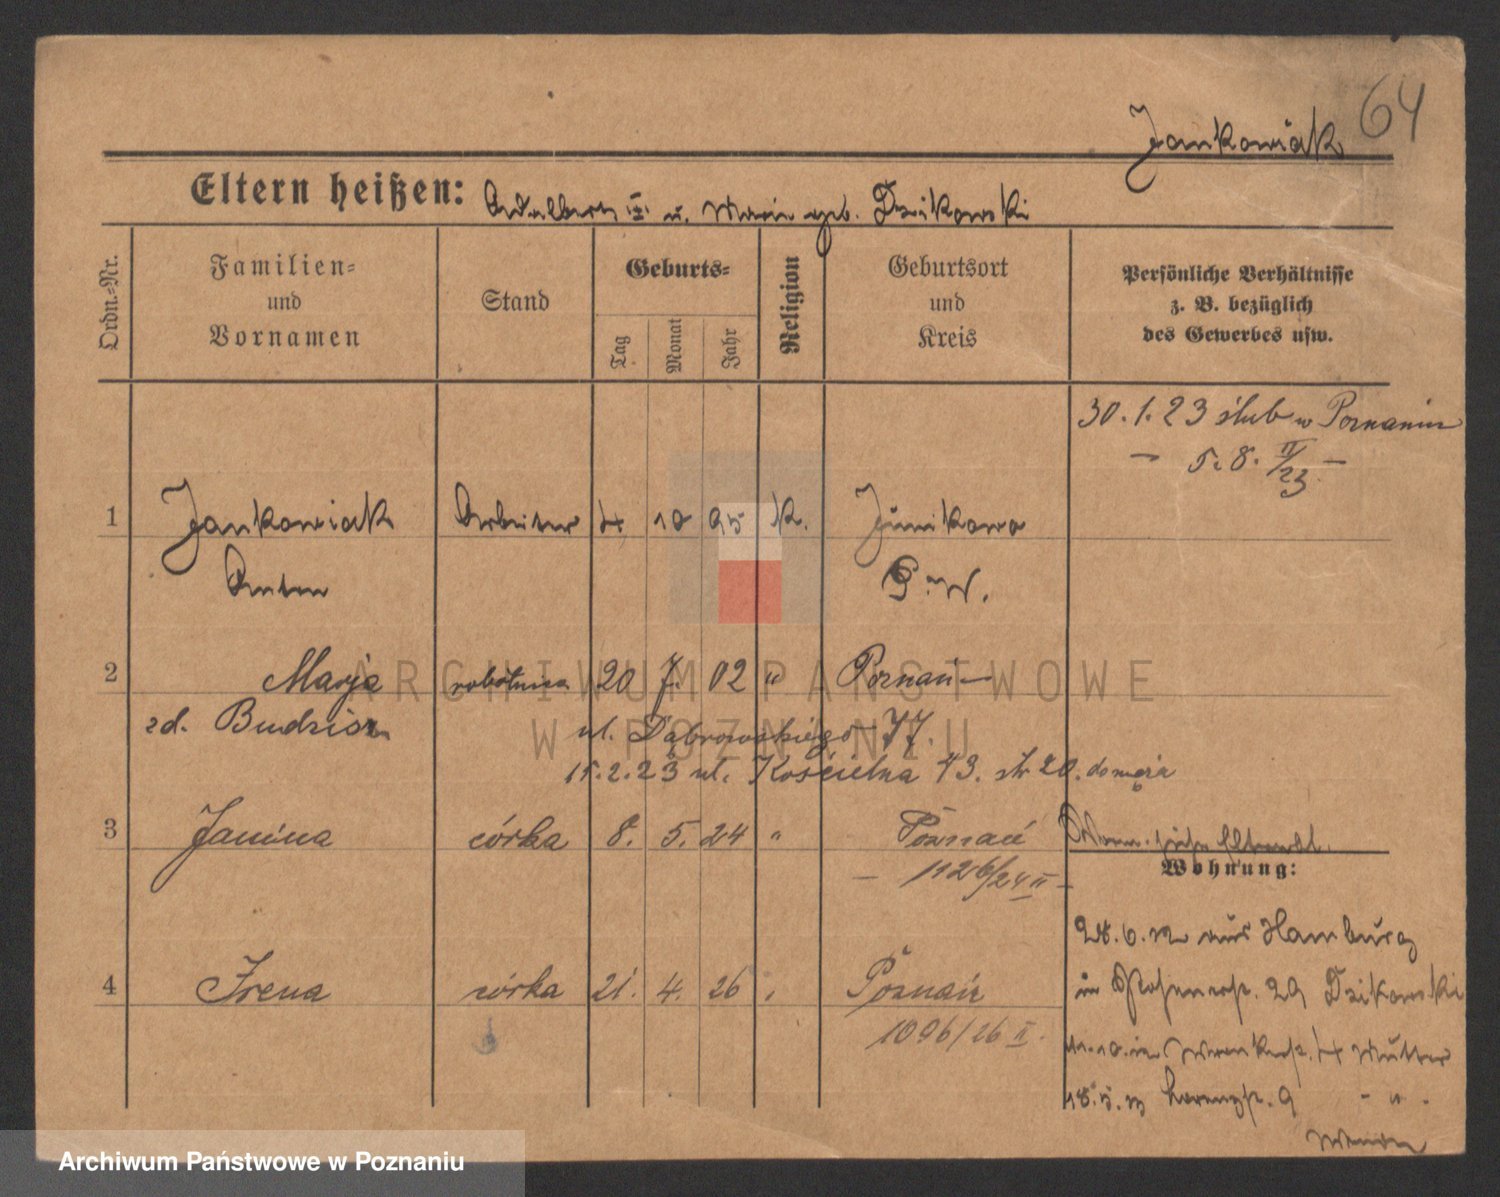 64
Jankowiak
Eltern heißen: Adalbert II. u. Marie geb. Dzikowski
Ordn.-Nr.
Familien- und Vornamen
Stand
Geburts-
Tag
Monat
Jahr
Religion
Geburtsort und Kreis
Persönliche Verhältnisse
z. B. bezüglich
des Gewerbes usw.
30.1.23 ślub w Poznaniu
– 5.8. II/23 –
1 Jankowiak Arbeiter 4 10 95 K. Junikowo
Anton P. W.
2 Marja robotnica 20 7. 02 " Poznań
zd. Budzisz ul. Dąbrowskiego 77.
15.2.23 ul. Kościelna 43. str 20. do męża
3 Janina córka 8. 5. 24 " Poznań
– 1126/24 II –
Wohnung:
4 Irena córka 21. 4. 26 Poznań
1096/26 II.
28.6.12 aus Hamburg
in 29 Dzikowski
4 Mutter
18.5. 9 - " -
ARCHIWUM PAŃSTWOWE
W POZNANIU
Archiwum Państwowe w Poznaniu